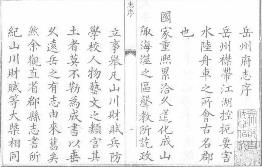 志序
岳州府志序
岳州襟帶江湖控扼蠻
水陸舟車之所會古名郡
也
國家重熙累洽久道化成山
陬海澨之區聲教所訖政
立事舉凡山川財賦兵防
學校人物藝文之類宦其
土者莫不勒為成書以垂
久遠岳之有志由來舊矣
然余觀直省郡縣志書所
紀山川財賦等大槩相同